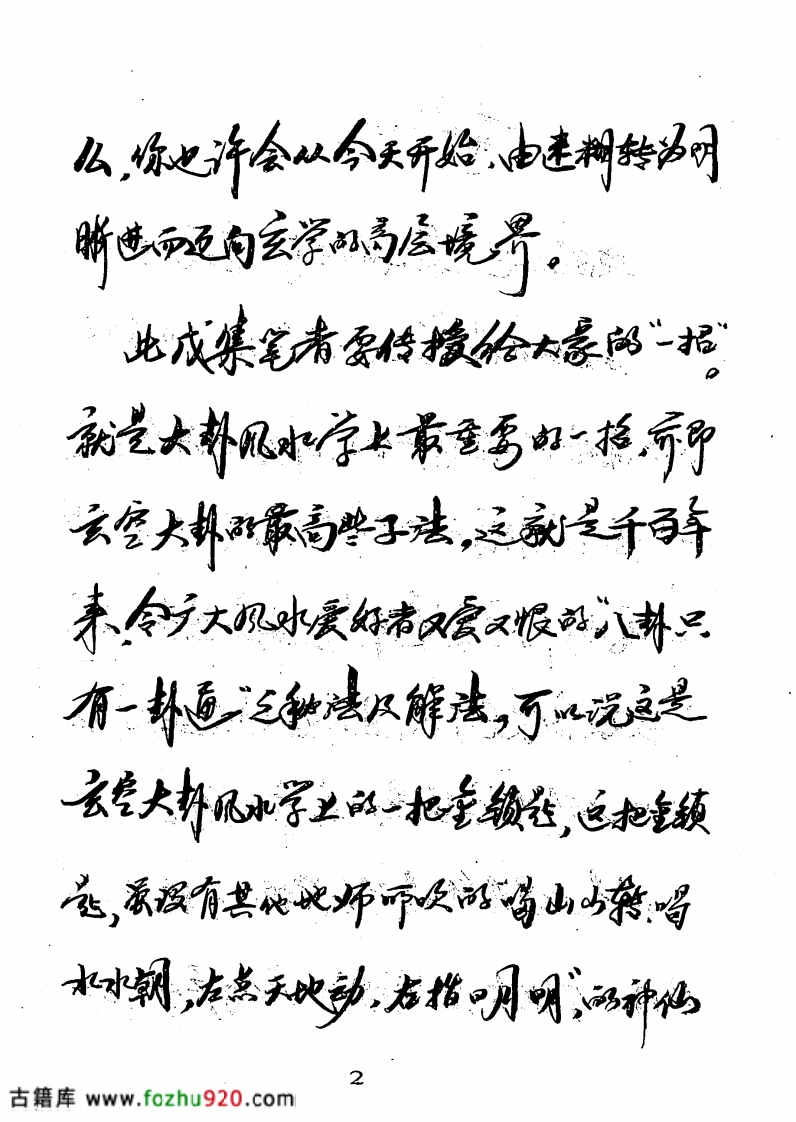 么,你也许会从今天开始、由迷糊转为明
晰进而迈向玄学的高层境界。
此戊集笔者要传授给大家的"一招"。
就是大卦风水学上最重要的一招,亦即
玄空大卦的最高些子法,这就是千百年
来,令广大风水爱好者又爱又恨的"八卦只
有一卦通"之秘法及解法,可以说这是
玄空大卦风水学上的一把金锁匙,这把金锁
匙,虽没有其他地师叩吹的"喝山山转、喝
水水朝,左点天地动、右指日月明",的神仙
2
古籍库 www.fozhu920.com